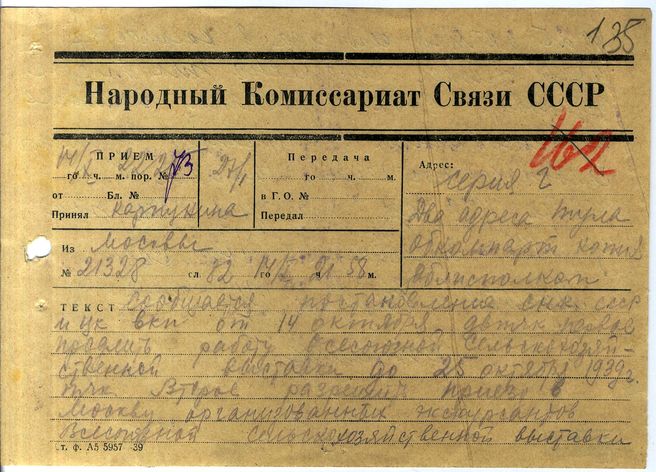 135
Народный Комиссариат Связи СССР
162
ПРИЕМ
го ч. м. пор. № 73
от Бл. №
Принял
Передача
го ч. м.
в Г.О. №
Передал
Адрес:
серия Г
Два адреса Тула
Из Москвы
№ 21328 сл. 82 го 21 ч. 58 м.
ТЕКСТ Сообщается постановления снк ссср
и цк вкп от 14 октября двтчк первое
работу всесоюзной сельскохозяй-
ственной выставки до 25 октября 1939г.
тчк Второе приезд в
Москву организованных экскурсантов
всесоюзной сельскохозяйственной выставки
ст. ф. А5 5957-39